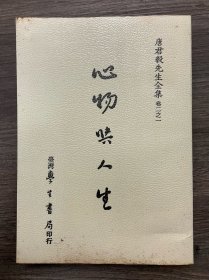 唐君毅先生全集 卷二之一
心物與人生
臺灣學生書局印行